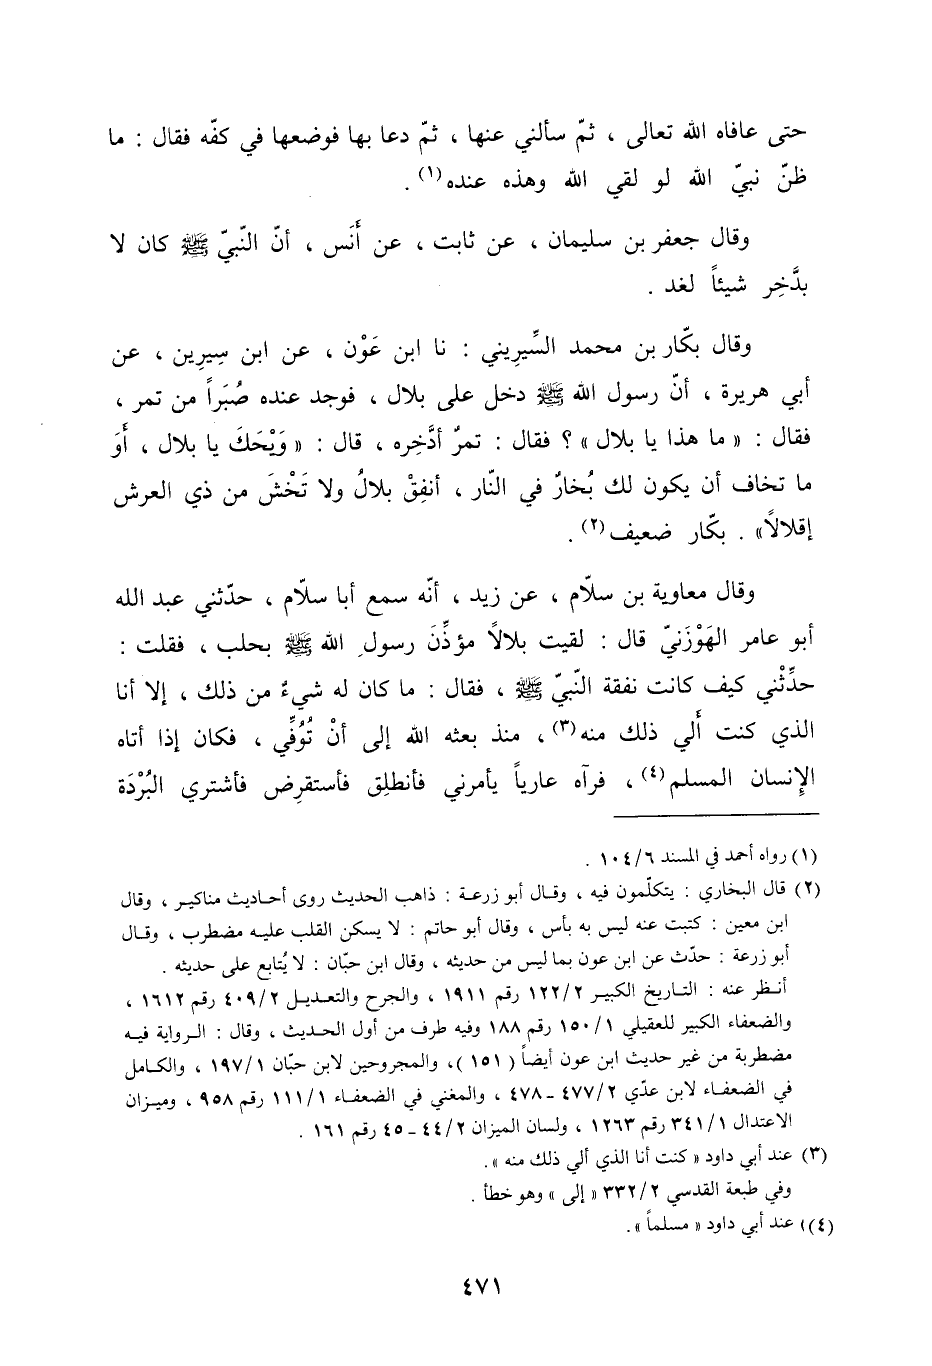 حتى عافاه الله تعالى ، ثمّ سألني عنها ، ثمّ دعا بها فوضعها في كفّه فقال : ما
ظنّ نبيّ الله لو لقي الله وهذه عنده(١) .
وقال جعفر بن سليمان ، عن ثابت ، عن أَنَس ، أنّ النّبيّ ﷺ كان لا
يدَّخِر شيئاً لغد .
وقال بكّار بن محمد السِّيرِيني : نا ابن عَوْن ، عن ابن سِيرِين ، عن
أبي هريرة ، أنّ رسول الله ﷺ دخل على بلال ، فوجد عنده صُبَراً من تمر ،
فقال : « ما هذا يا بلال » ؟ فقال : تمرٌ أدَّخِره ، قال : « وَيْحَكَ يا بلال ، أَوَ
ما تخاف أن يكون لك بُخارٌ في النّار ، أنفِقْ بلالُ ولا تَخْشَ من ذي العرش
إقلالاً» . بكّار ضعيف(٢) .
وقال معاوية بن سلّام ، عن زيد ، أنّه سمع أبا سلّام ، حدّثني عبد الله
أبو عامر الهَوْزَنيّ قال : لقيت بلالاً مؤذِّنَ رسول الله ﷺ بحلب ، فقلت :
حدِّثْني كيف كانت نفقة النّبيّ ﷺ ، فقال : ما كان له شيءٌ من ذلك ، إلا أنا
الذي كنت أَلي ذلك منه(٣) ، منذ بعثه الله إلى أنْ تُوُفِّي ، فكان إذا أتاه
الإنسان المسلم(٤) ، فرآه عارياً يأمرني فأنطلِق فأستقرِض فأشتري البُرْدَة
(١) رواه أحمد في المسند ١٠٤/٦ .
(٢) قال البخاري : يتكلّمون فيه ، وقال أبو زرعة : ذاهب الحديث روى أحاديث مناكير ، وقال
ابن معين : كتبت عنه ليس به بأس ، وقال أبو حاتم : لا يسكن القلب عليه مضطرب ، وقال
أبو زرعة : حدّث عن ابن عون بما ليس من حديثه ، وقال ابن حبّان : لا يُتابع على حديثه .
أنظر عنه : التاريخ الكبير ١٢٢/٢ رقم ١٩١١ ، والجرح والتعديل ٤٠٩/٢ رقم ١٦١٢ ،
والضعفاء الكبير للعقيلي ١٥٠/١ رقم ١٨٨ وفيه طرف من أول الحديث ، وقال : الرواية فيه
مضطربة من غير حديث ابن عون أيضاً (١٥١) ، والمجروحين لابن حبّان ١٩٧/١ ، والكامل
في الضعفاء لابن عدّي ٤٧٧/٢ ـ ٤٧٨ ، والمغني في الضعفاء ١١١/١ رقم ٩٥٨ ، وميزان
الاعتدال ٣٤١/١ رقم ١٢٦٣ ، ولسان الميزان ٤٤/٢ ـ ٤٥ رقم ١٦١ .
(٣) عند أبي داود « كنت أنا الذي ألي ذلك منه ».
وفي طبعة القدسي ٣٣٢/٢ « إلى » وهو خطأ .
(٤)) عند أبي داود « مسلماً » .
٤٧١